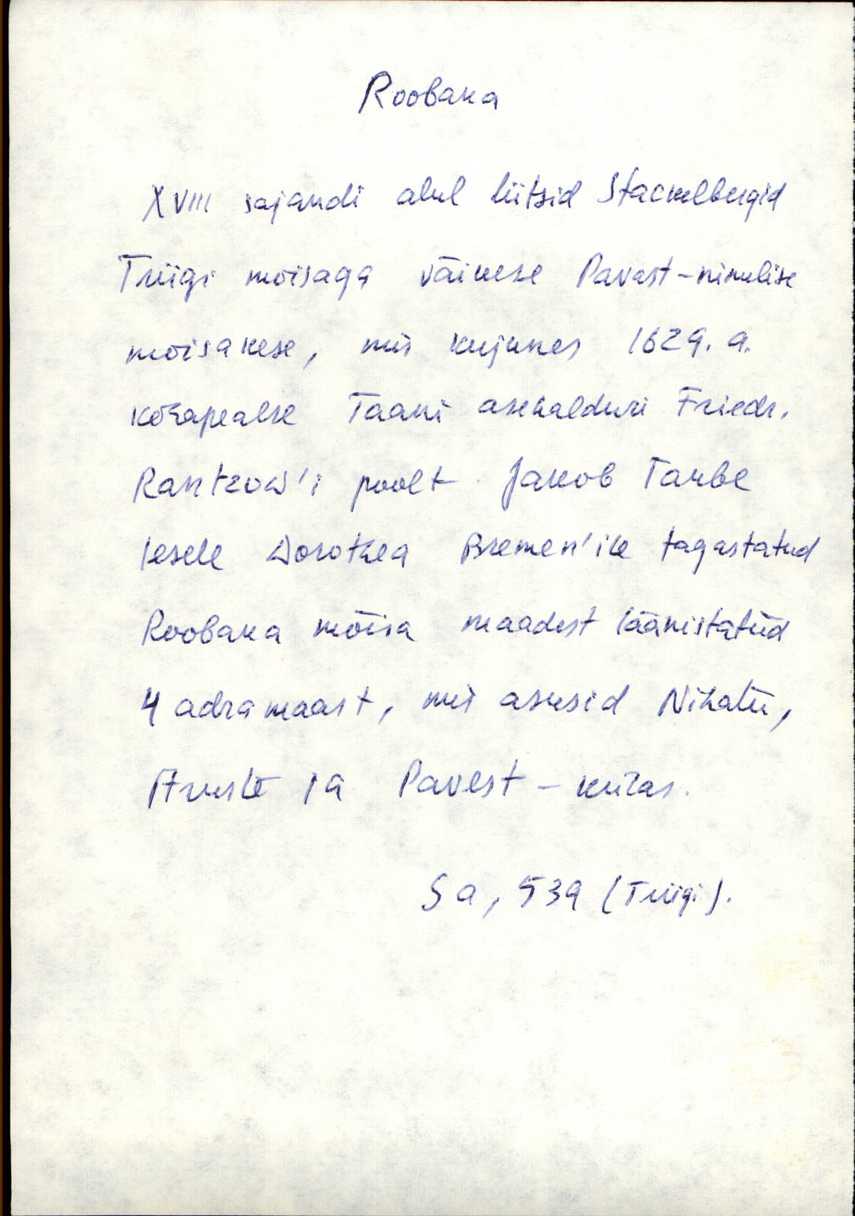 Roobaka
XVIII sajandi alul liitsid Stackelbergid
Triigi mõisaga väikese Pavast-nimelise
mõisakese, mis kujunes 1629. a.
kohapealse Taani asehalduri Friedr.
Rantzow'i poolt Jakob Taube
lesele Dorothea Bremen'ile tagastatud
Roobaka mõisa maadest läänistatud
4 adramaast, mis asusid Nihatu,
Aruste ja Pavest-külas.
Sa, 539 (Triigi).